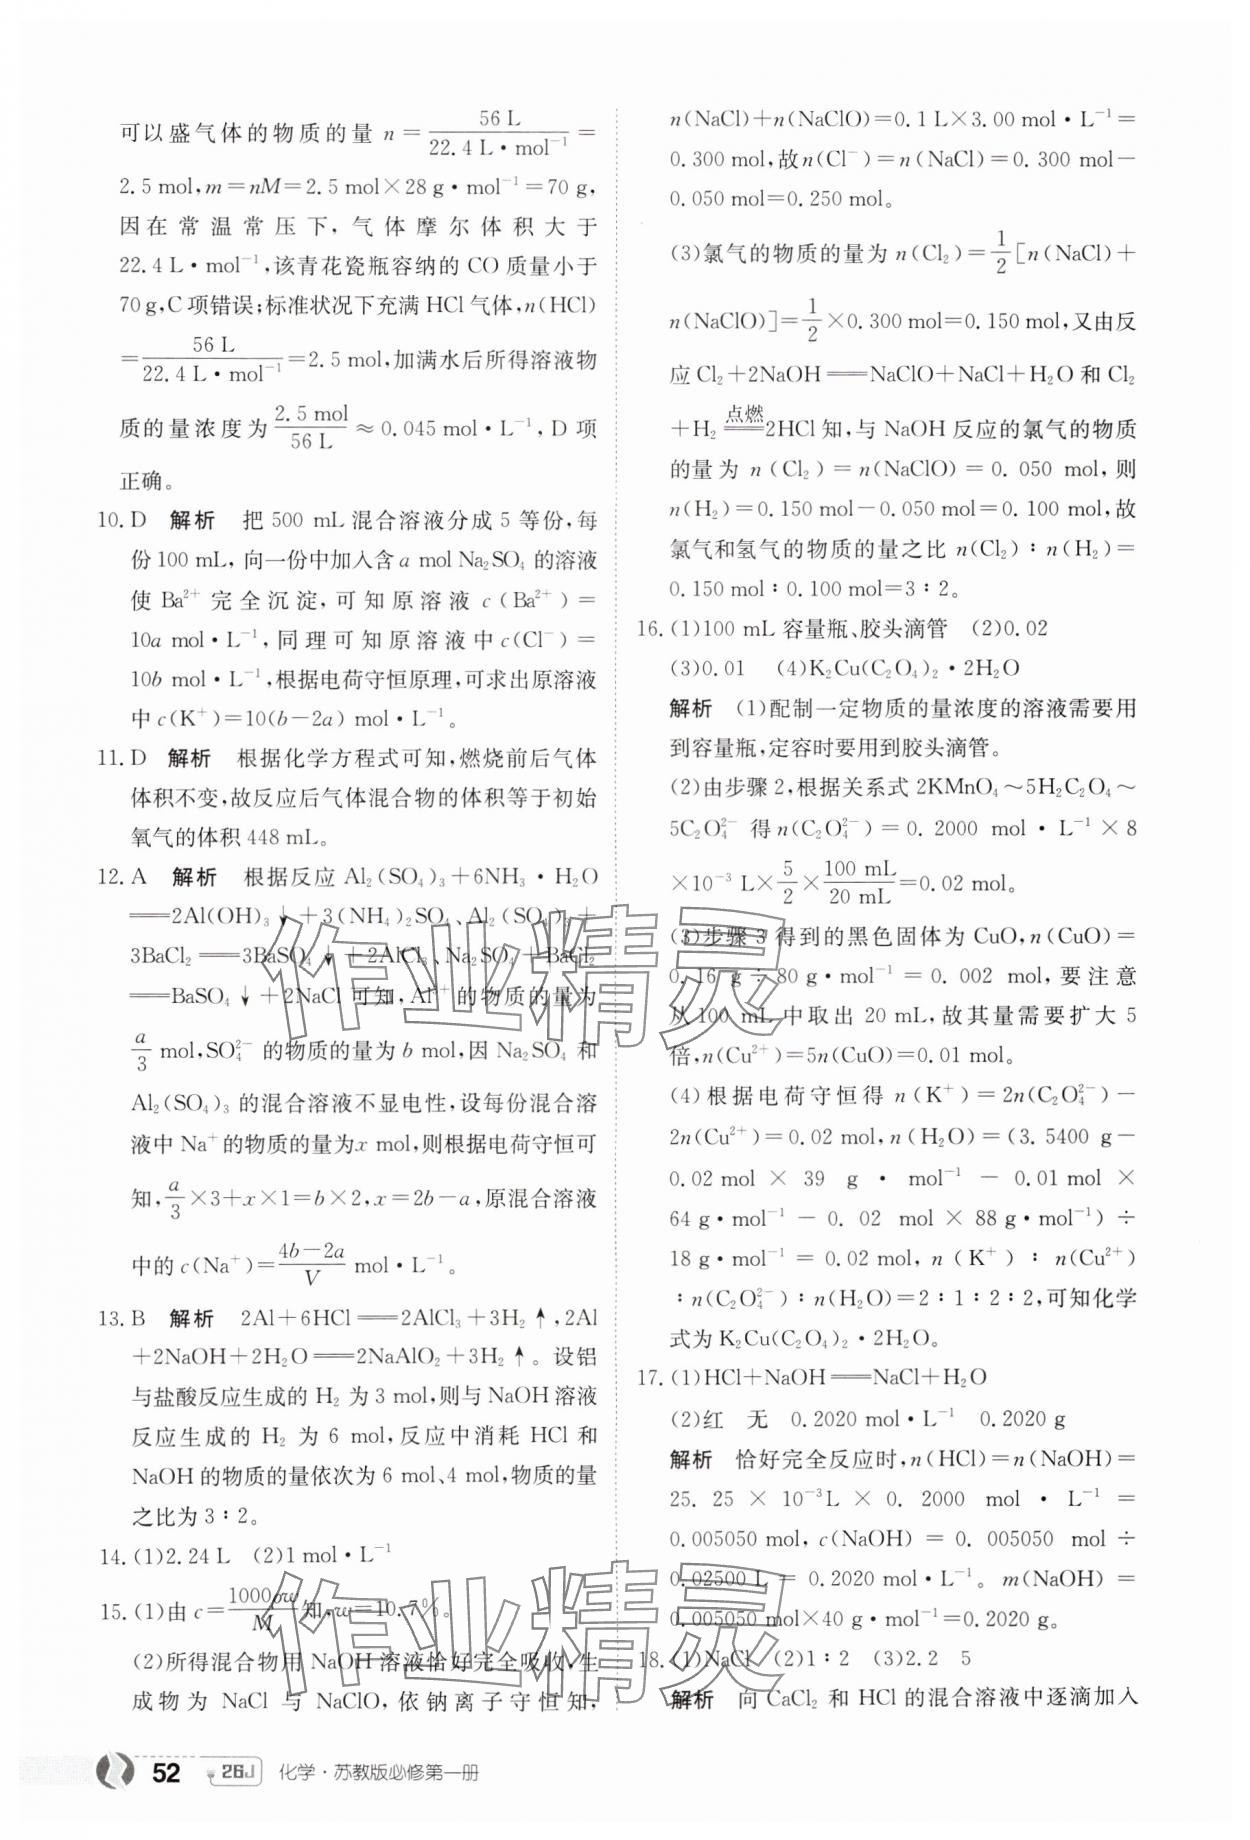 可以盛气体的物质的量 n = 56 L / 22.4 L·mol⁻¹ =
2.5 mol,m=nM=2.5 mol×28 g·mol⁻¹=70 g,
因在常温常压下,气体摩尔体积大于
22.4 L·mol⁻¹,该青花瓷瓶容纳的 CO 质量小于
70 g,C 项错误;标准状况下充满 HCl 气体,n(HCl)
= 56 L / 22.4 L·mol⁻¹ =2.5 mol,加满水后所得溶液物
质的量浓度为 2.5 mol / 56 L ≈0.045 mol·L⁻¹,D 项
正确。
10. D 解析 把 500 mL 混合溶液分成 5 等份,每
份 100 mL,向一份中加入含 a mol Na₂SO₄ 的溶液
使 Ba²⁺ 完全沉淀,可知原溶液 c(Ba²⁺)=
10a mol·L⁻¹,同理可知原溶液中 c(Cl⁻)=
10b mol·L⁻¹,根据电荷守恒原理,可求出原溶液
中 c(K⁺)=10(b-2a) mol·L⁻¹。
11. D 解析 根据化学方程式可知,燃烧前后气体
体积不变,故反应后气体混合物的体积等于初始
氧气的体积 448 mL。
12. A 解析 根据反应 Al₂(SO₄)₃+6NH₃·H₂O
══2Al(OH)₃↓+3(NH₄)₂SO₄、Al₂(SO₄)₃+
3BaCl₂══3BaSO₄↓+2AlCl₃、Na₂SO₄+BaCl₂
══BaSO₄↓+2NaCl 可知,Al³⁺的物质的量为
a/3 mol,SO₄²⁻ 的物质的量为 b mol,因 Na₂SO₄ 和
Al₂(SO₄)₃ 的混合溶液不显电性,设每份混合溶
液中 Na⁺的物质的量为x mol,则根据电荷守恒可
知,a/3×3+x×1=b×2,x=2b-a,原混合溶液
中的 c(Na⁺)=(4b-2a)/V mol·L⁻¹。
13. B 解析 2Al+6HCl══2AlCl₃+3H₂↑,2Al
+2NaOH+2H₂O══2NaAlO₂+3H₂↑。设铝
与盐酸反应生成的 H₂ 为 3 mol,则与 NaOH 溶液
反应生成的 H₂ 为 6 mol,反应中消耗 HCl 和
NaOH 的物质的量依次为 6 mol、4 mol,物质的量
之比为 3∶2。
14. (1)2.24 L (2)1 mol·L⁻¹
15. (1)由 c=1000ρw/M 知,w=10.7%。
(2)所得混合物用 NaOH 溶液恰好完全吸收,生
成物为 NaCl 与 NaClO,依钠离子守恒知,
n(NaCl)+n(NaClO)=0.1 L×3.00 mol·L⁻¹=
0.300 mol,故 n(Cl⁻)=n(NaCl)=0.300 mol-
0.050 mol=0.250 mol。
(3)氯气的物质的量为 n(Cl₂)=1/2[n(NaCl)+
n(NaClO)]=1/2×0.300 mol=0.150 mol,又由反
应 Cl₂+2NaOH══NaClO+NaCl+H₂O 和 Cl₂
+H₂ 点燃══2HCl 知,与 NaOH 反应的氯气的物质
的量为 n(Cl₂)=n(NaClO)=0.050 mol,则
n(H₂)=0.150 mol-0.050 mol=0.100 mol,故
氯气和氢气的物质的量之比 n(Cl₂)∶n(H₂)=
0.150 mol∶0.100 mol=3∶2。
16. (1)100 mL 容量瓶、胶头滴管 (2)0.02
(3)0.01 (4)K₂Cu(C₂O₄)₂·2H₂O
解析 (1)配制一定物质的量浓度的溶液需要用
到容量瓶,定容时要用到胶头滴管。
(2)由步骤 2,根据关系式 2KMnO₄~5H₂C₂O₄~
5C₂O₄²⁻ 得 n(C₂O₄²⁻)=0.2000 mol·L⁻¹×8
×10⁻³ L×5/2×100 mL/20 mL=0.02 mol。
(3)步骤 3 得到的黑色固体为 CuO,n(CuO)=
0.16 g÷80 g·mol⁻¹=0.002 mol,要注意
从 100 mL 中取出 20 mL,故其量需要扩大 5
倍,n(Cu²⁺)=5n(CuO)=0.01 mol。
(4)根据电荷守恒得 n(K⁺)=2n(C₂O₄²⁻)-
2n(Cu²⁺)=0.02 mol,n(H₂O)=(3.5400 g-
0.02 mol × 39 g·mol⁻¹ - 0.01 mol ×
64 g·mol⁻¹ - 0.02 mol×88 g·mol⁻¹)÷
18 g·mol⁻¹=0.02 mol,n(K⁺)∶n(Cu²⁺)
∶n(C₂O₄²⁻)∶n(H₂O)=2∶1∶2∶2,可知化学
式为 K₂Cu(C₂O₄)₂·2H₂O。
17. (1)HCl+NaOH══NaCl+H₂O
(2)红 无 0.2020 mol·L⁻¹ 0.2020 g
解析 恰好完全反应时,n(HCl)=n(NaOH)=
25.25×10⁻³L×0.2000 mol·L⁻¹=
0.005050 mol,c(NaOH)=0.005050 mol÷
0.02500 L=0.2020 mol·L⁻¹。m(NaOH)=
0.005050 mol×40 g·mol⁻¹=0.2020 g。
18. (1)NaCl (2)1∶2 (3)2.2 5
解析 向 CaCl₂ 和 HCl 的混合溶液中逐滴加入
作业精灵
作业精灵
52 26J 化学·苏教版必修第一册